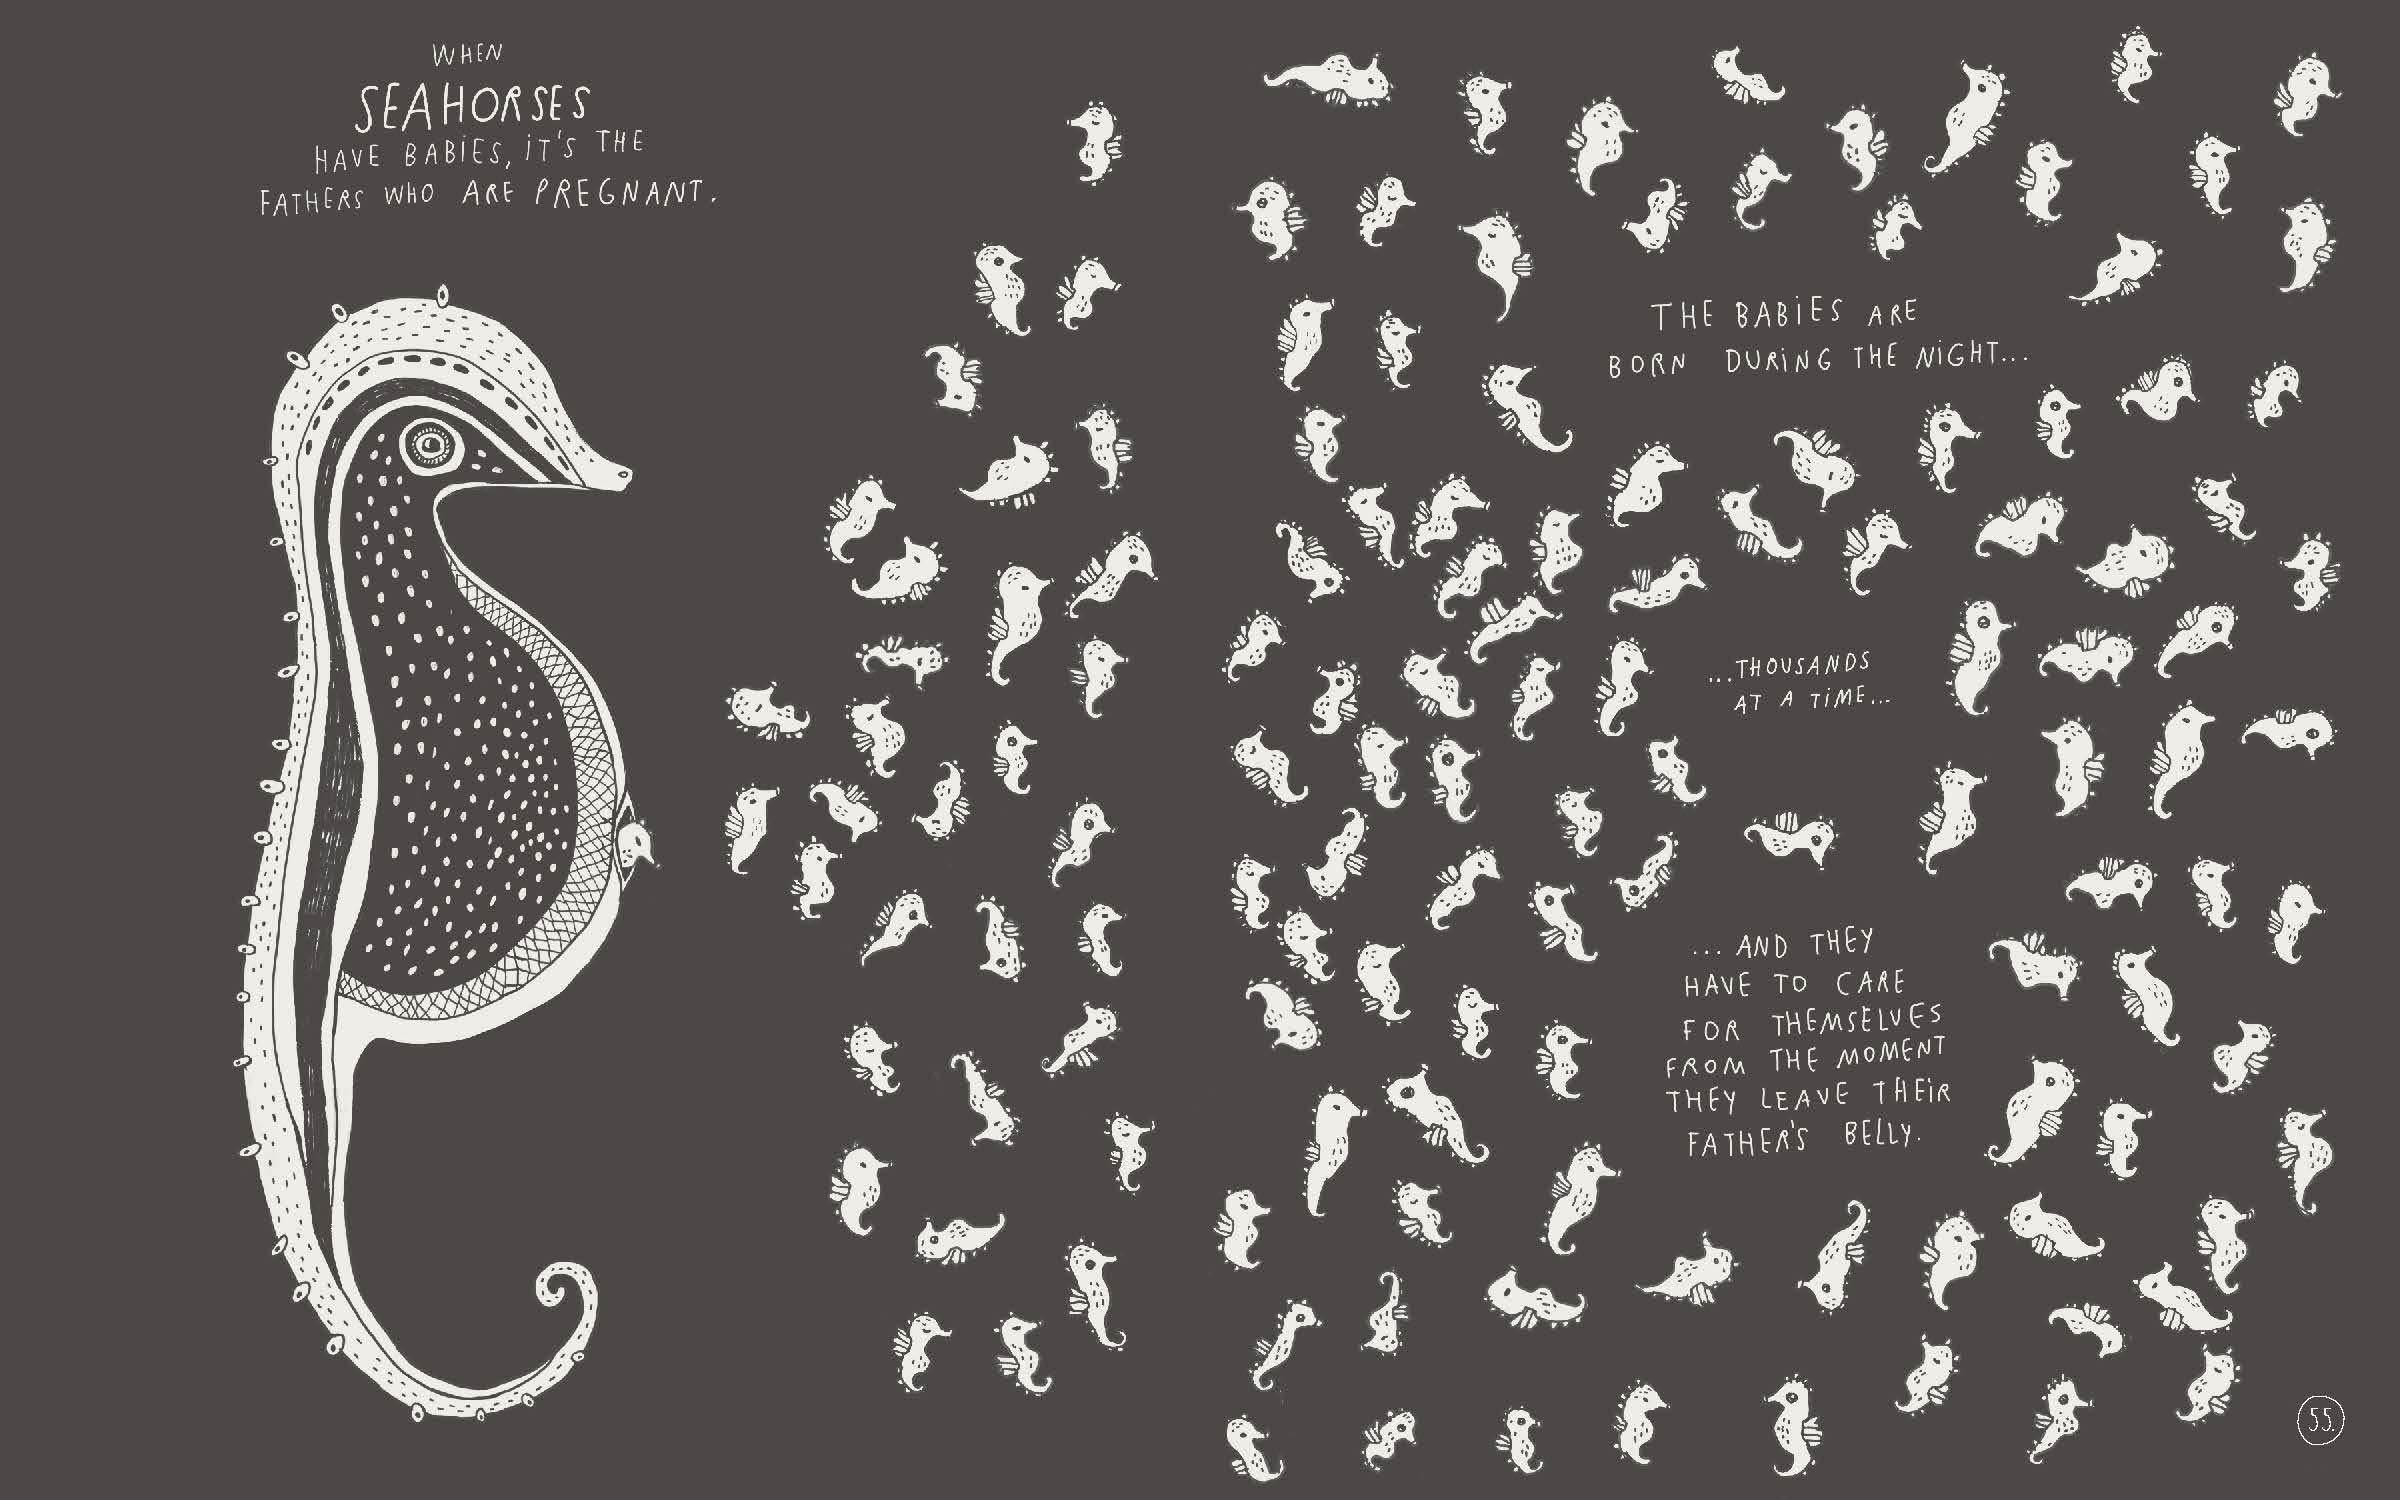 WHEN
SEAHORSES
HAVE BABIES, IT'S THE
FATHERS WHO ARE PREGNANT.
THE BABIES ARE
BORN DURING THE NIGHT...
...THOUSANDS
AT A TIME...
...AND THEY
HAVE TO CARE
FOR THEMSELVES
FROM THE MOMENT
THEY LEAVE THEIR
FATHER'S BELLY.
55.